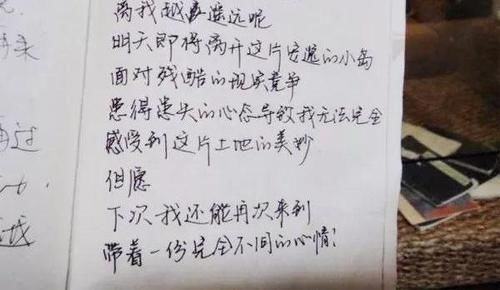 离我越遥远呢
明天即将离开这片安逸的小岛
面对残酷的现实竞争
患得患失的心态导致我无法完全
感受到这片土地的美妙
但愿
下次我还能再次来到
带着一份完全不同的心情！
再过